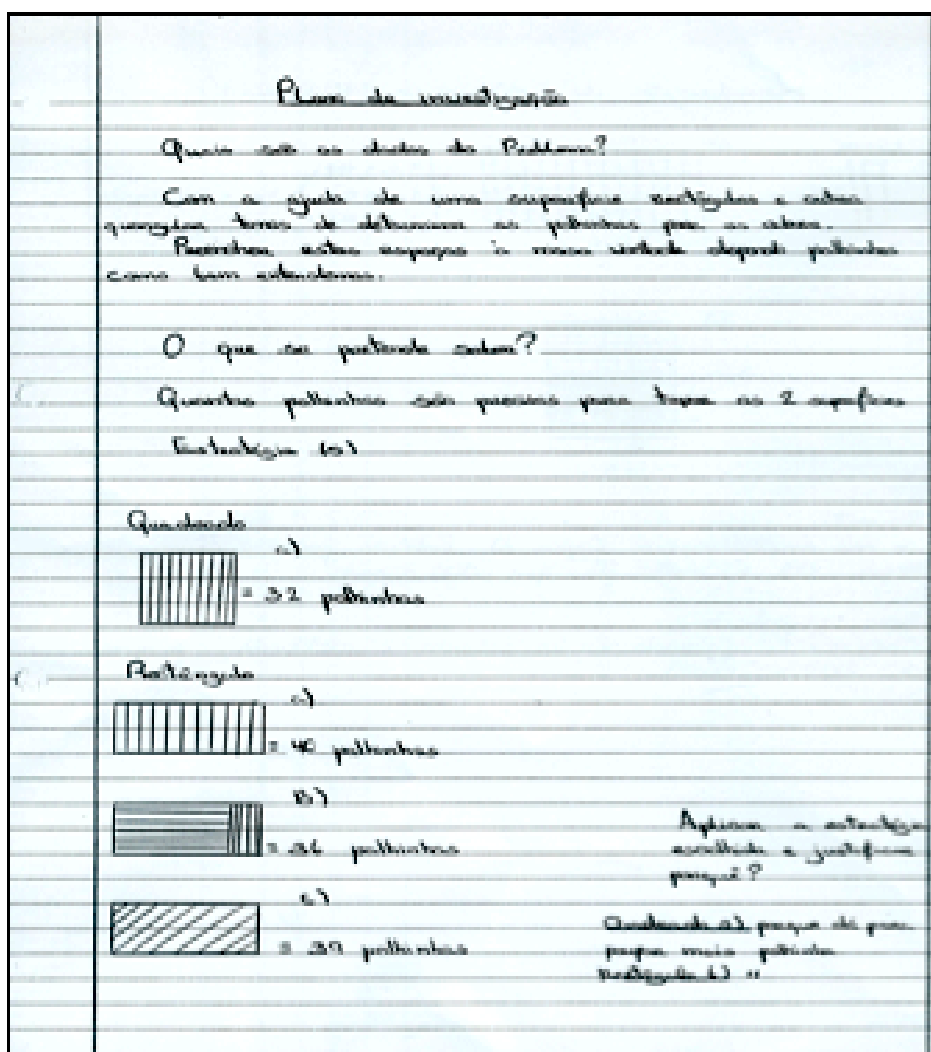 Plano de investigação
Quais são os dados do Problema?
Com a ajuda de uma superfície rectângular e outra
quangular temos de determinar as palhinhas para as
Preencher estes espaços à nossa vontade palhinhas
como bem entendermos.
O que se pretende saber?
Quantas palhinhas são precisas para tapar as 2 superfícies
Estratégia (s)
Quadrado
a)
= 32 palhinhas
Rectângulo
a)
= 40 palhinhas
B)
= 36 palhinhas
c)
= 39 palhinhas
Aplicar a estratégia
escolhida e justificar
porquê?
Quadrado a) porque dá para
poupar mais palhinhas
Rectângulo b) "